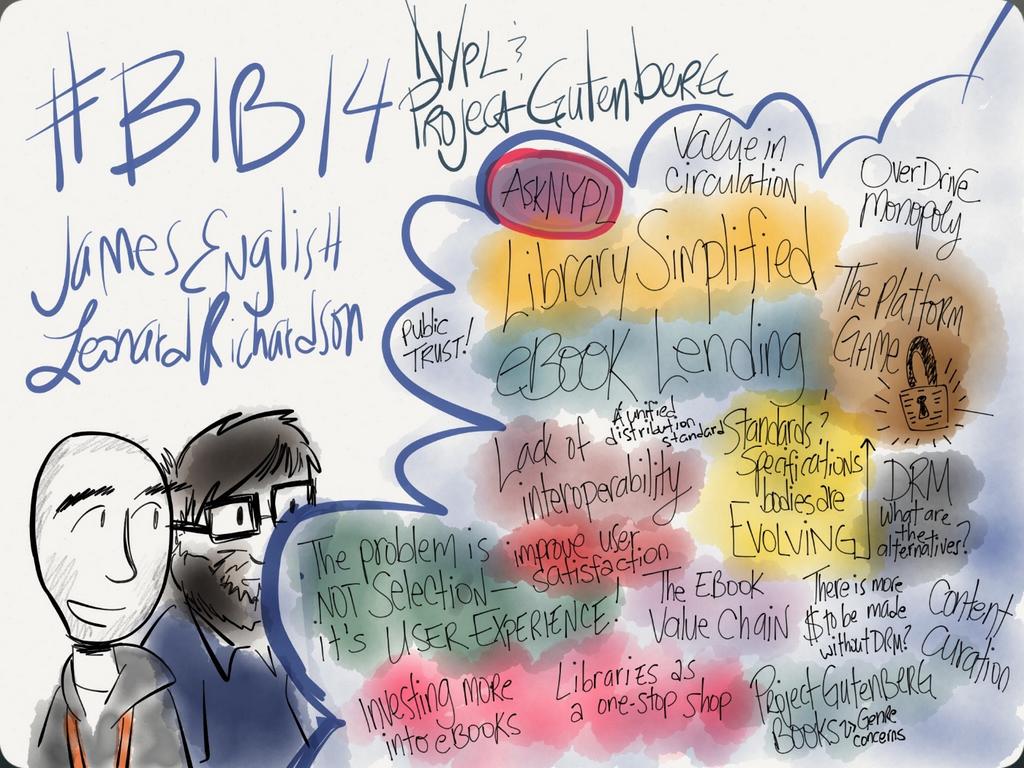 #BIB14
NYPL &
Project Gutenberg
James English
Leonard Richardson
AskNYPL
Value in
circulation
OverDrive
Monopoly
Library Simplified
The Platform
GAME
PUBLIC
TRUST!
eBook Lending
A unified
distribution
standard
Lack of
interoperability
Standards &
Specifications
bodies are
EVOLVING
DRM
What are
the
alternatives?
The problem is
NOT Selection—
it's USER EXPERIENCE!
improve user
satisfaction
The EBook
Value Chain
There is more
$ to be made
without DRM?
Content
Curation
Investing more
into eBooks
Libraries as
a one-stop shop
Project Gutenberg
BOOKS -> Genre
concerns